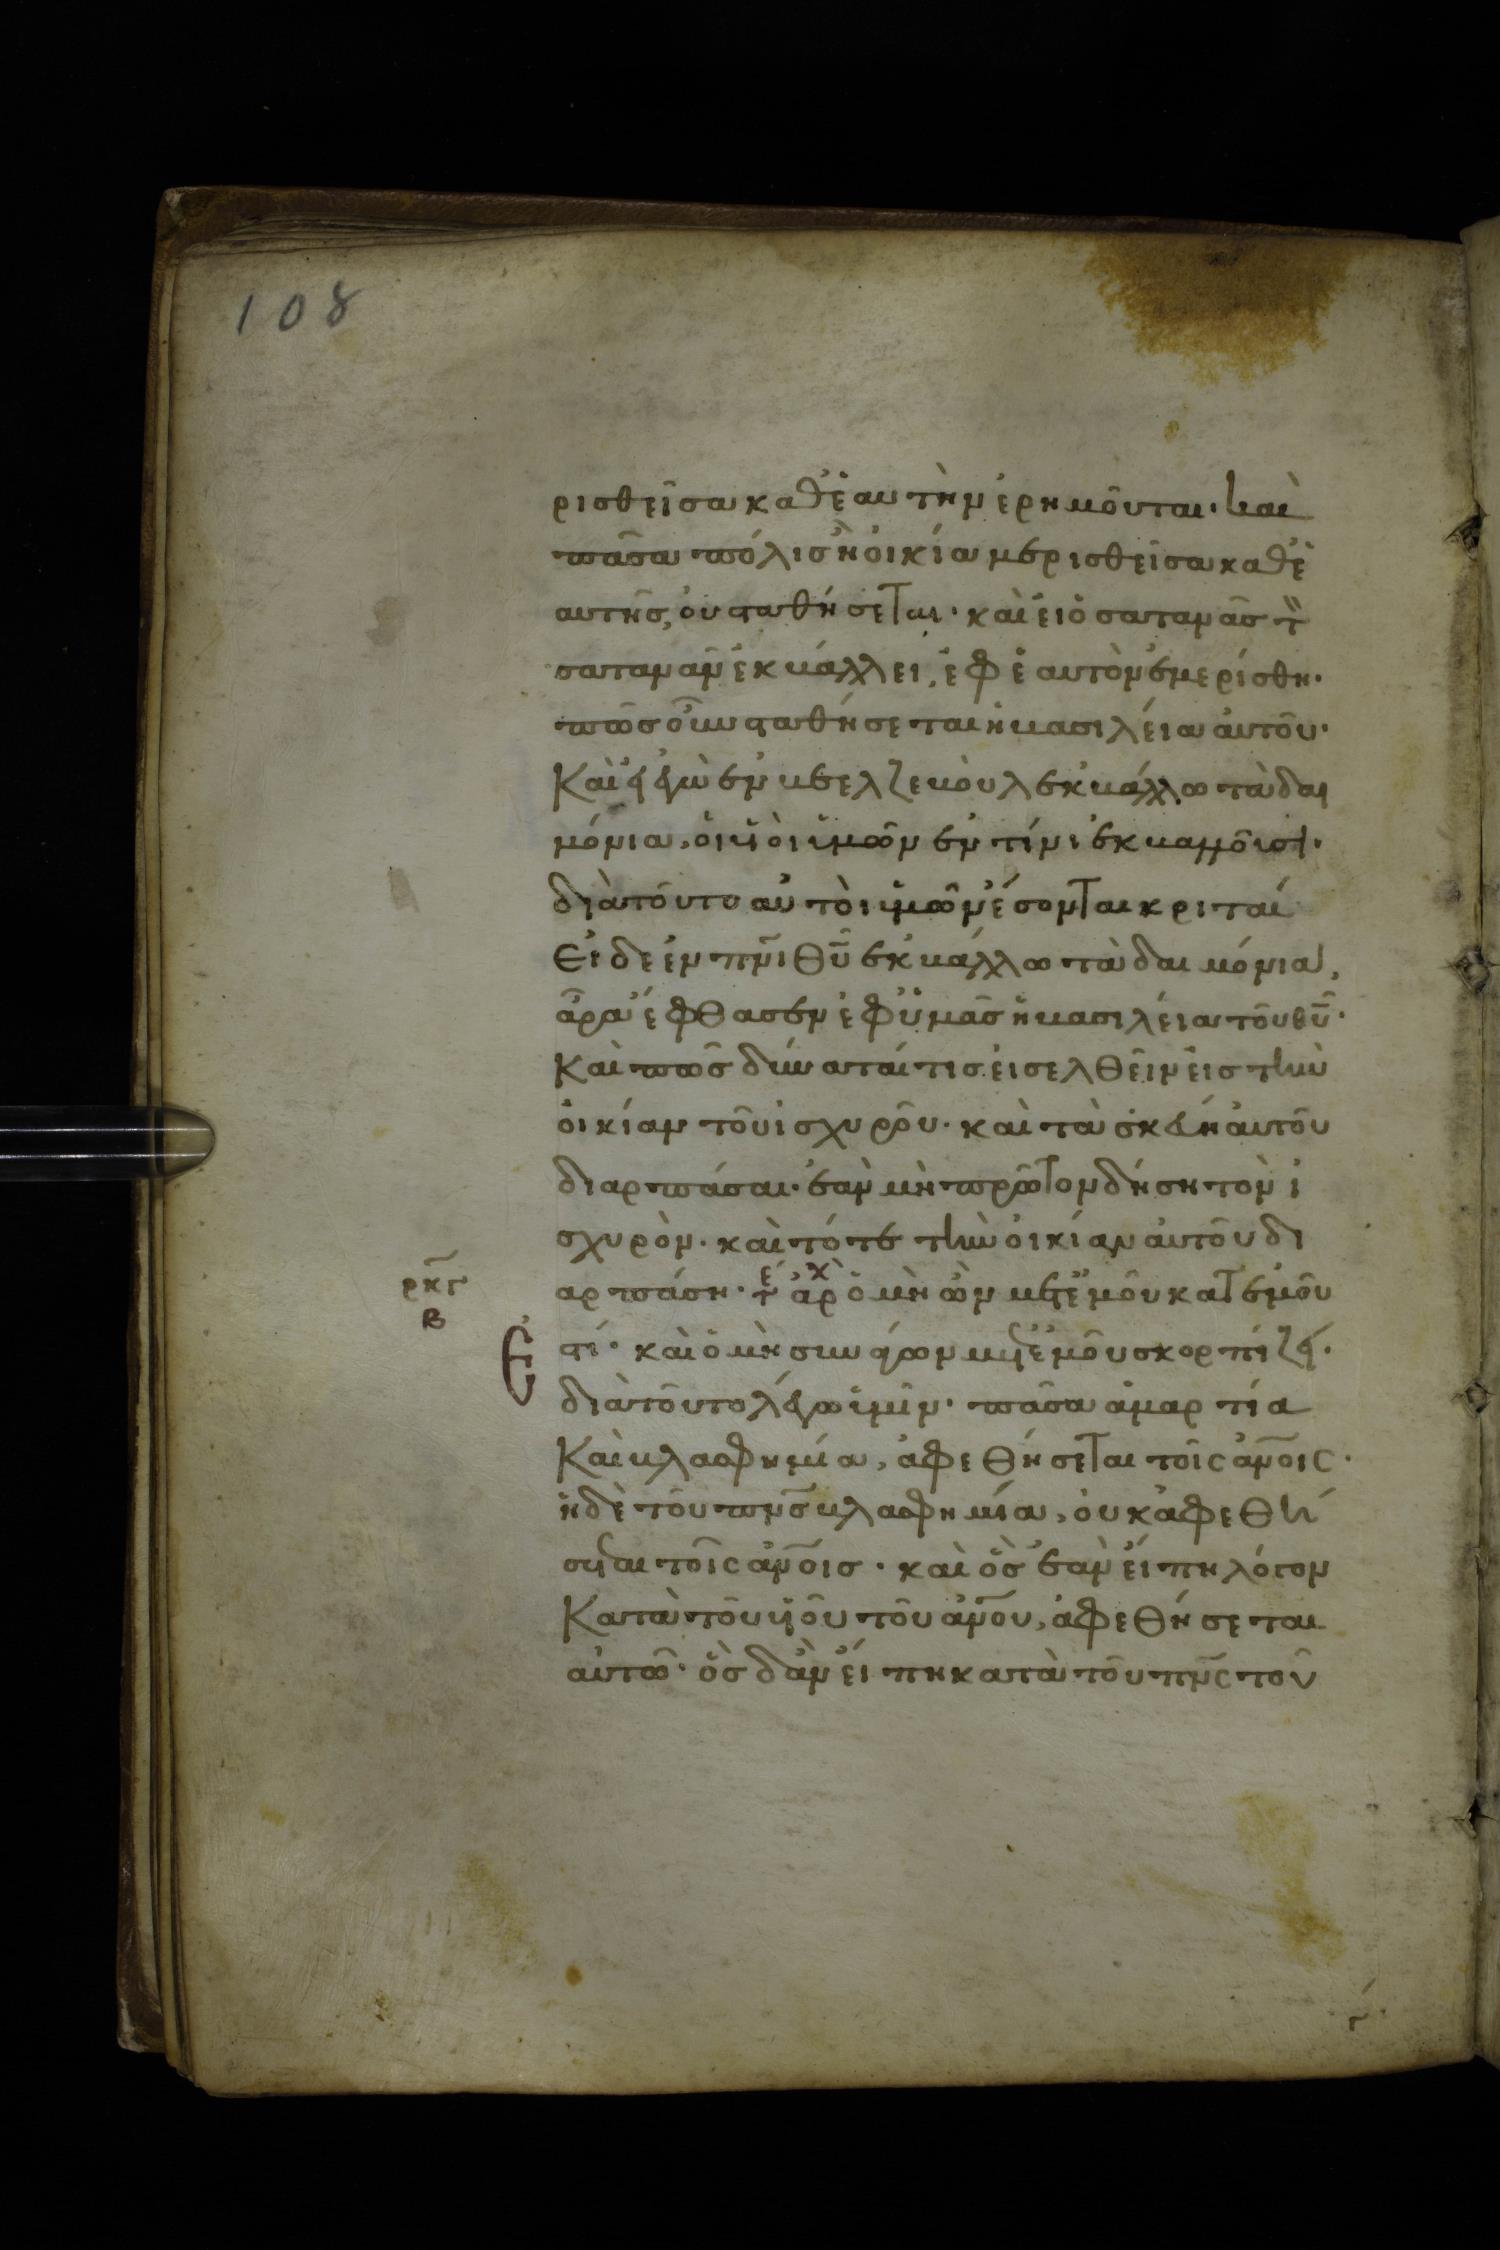 108
ρισθεῖσα καθ' ἑαυτὴν ἐρημοῦται· καὶ
πᾶσα πόλις ἢ οἰκία μερισθεῖσα καθ' ἑ
αυτῆς, οὐ σταθήσεται· καὶ εἰ ὁ σατανᾶς τὸ
σαταναν ἐκβάλλει, ἐφ' ἑαυτὸν ἐμερίσθη·
πῶς οὖν σταθήσεται ἡ βασιλεία αὐτοῦ·
Καὶ εἰ ἐγὼ ἐν βεελζεβοὺλ ἐκβάλλω τὰ δαι
μόνια, οἱ υἱοὶ ὑμῶν ἐν τίνι ἐκβαλλοῦσι·
διὰ τοῦτο αὐτοὶ ὑμῶν ἔσονται κριταί
Εἰ δὲ ἐν πνι θυ ἐκβάλλω τὰ δαιμόνια,
ἄρα ἔφθασεν ἐφ' ὑμᾶς ἡ βασιλεία τοῦ θυ·
Καὶ πῶς δύναταί τις εἰσελθεῖν εἰς τὴν
οἰκίαν τοῦ ἰσχυροῦ· καὶ τὰ σκεύη αὐτοῦ
διαρπάσαι· ἐὰν μὴ πρῶτον δήση τὸν ἰ
σχυρὸν· καὶ τότε τὴν οἰκίαν αὐτοῦ δι
ρκγ
β
αρπάση· τε αρχ ὁ μὴ ὢν μετ' ἐμοῦ κατ' ἐμοῦ
ἐστί· καὶ ὁ μὴ συνάγων μετ' ἐμοῦ σκορπίζει·
διὰ τοῦτο λέγω ὑμῖν· πᾶσα ἁμαρτία
Καὶ βλασφημία, ἀφεθήσεται τοῖς ἀνοις·
ἡ δὲ τοῦ πνς βλασφημία, οὐκ ἀφεθή
σεται τοῖς ἀνοις· καὶ ὃς ἐὰν εἴπη λόγον
Κατὰ τοῦ υἱοῦ τοῦ ἀνου, ἀφεθήσεται
αὐτῶ· ὃς δ' ἂν εἴπη κατὰ τοῦ πνς τοῦ